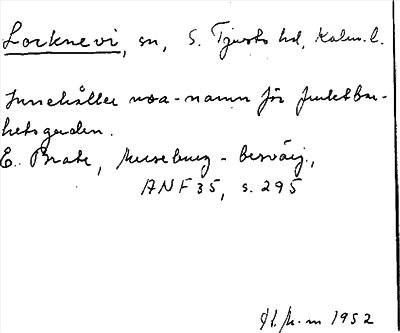 Locknevi, sn, S. Tjusts hd, Kalm. l.
Innehåller noa-namn för fruktbar-
hetsguden.
E. Brate, Merseburg-besvärj.,
ANF 35, s. 295
1952